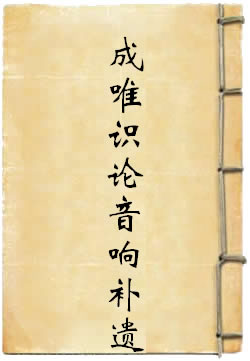 成唯识论音响补遗